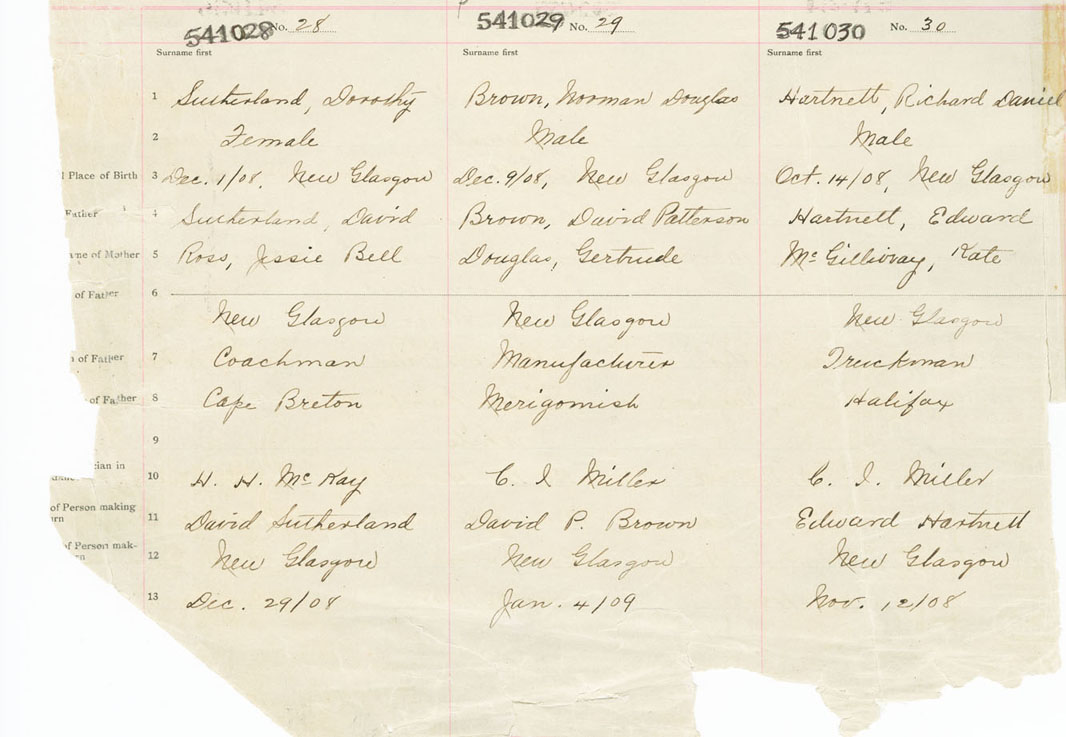 541028 No. 28 541029 No. 29 541030 No. 30
Surname first Surname first Surname first
1 Sutherland, Dorothy Brown, Norman Douglas Hartnett, Richard Daniel
2 Female Male Male
Place of Birth 3 Dec. 1/08, New Glasgow Dec. 9/08, New Glasgow Oct. 14/08, New Glasgow
Father 4 Sutherland, David Brown, David Patterson Hartnett, Edward
of Mother 5 Ross, Jessie Bell Douglas, Gertrude McGillivray, Kate
of Father 6
New Glasgow New Glasgow New Glasgow
of Father 7 Coachman Manufacturer Truckman
of Father 8 Cape Breton Merigomish Halifax
9
cian in
10 H. H. McKay C. I Miller C. I. Miller
of Person making
11 David Sutherland David P. Brown Edward Hartnett
of Person mak-
12 New Glasgow New Glasgow New Glasgow
13 Dec. 29/08 Jan. 4/09 Nov. 12/08